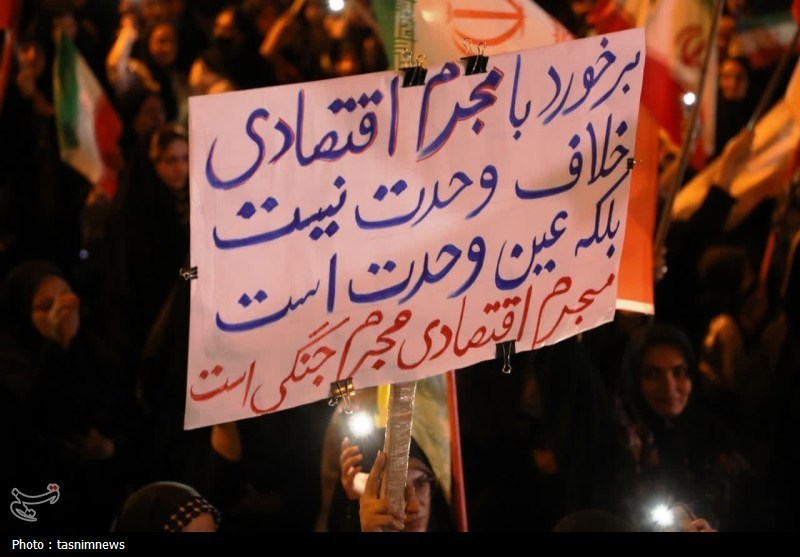 برخورد با مجرم اقتصادی
خلاف وحدت نیست
بلکه عین وحدت است
مجرم اقتصادی مجرم جَنگی است
تسنیم
Photo : tasnimnews